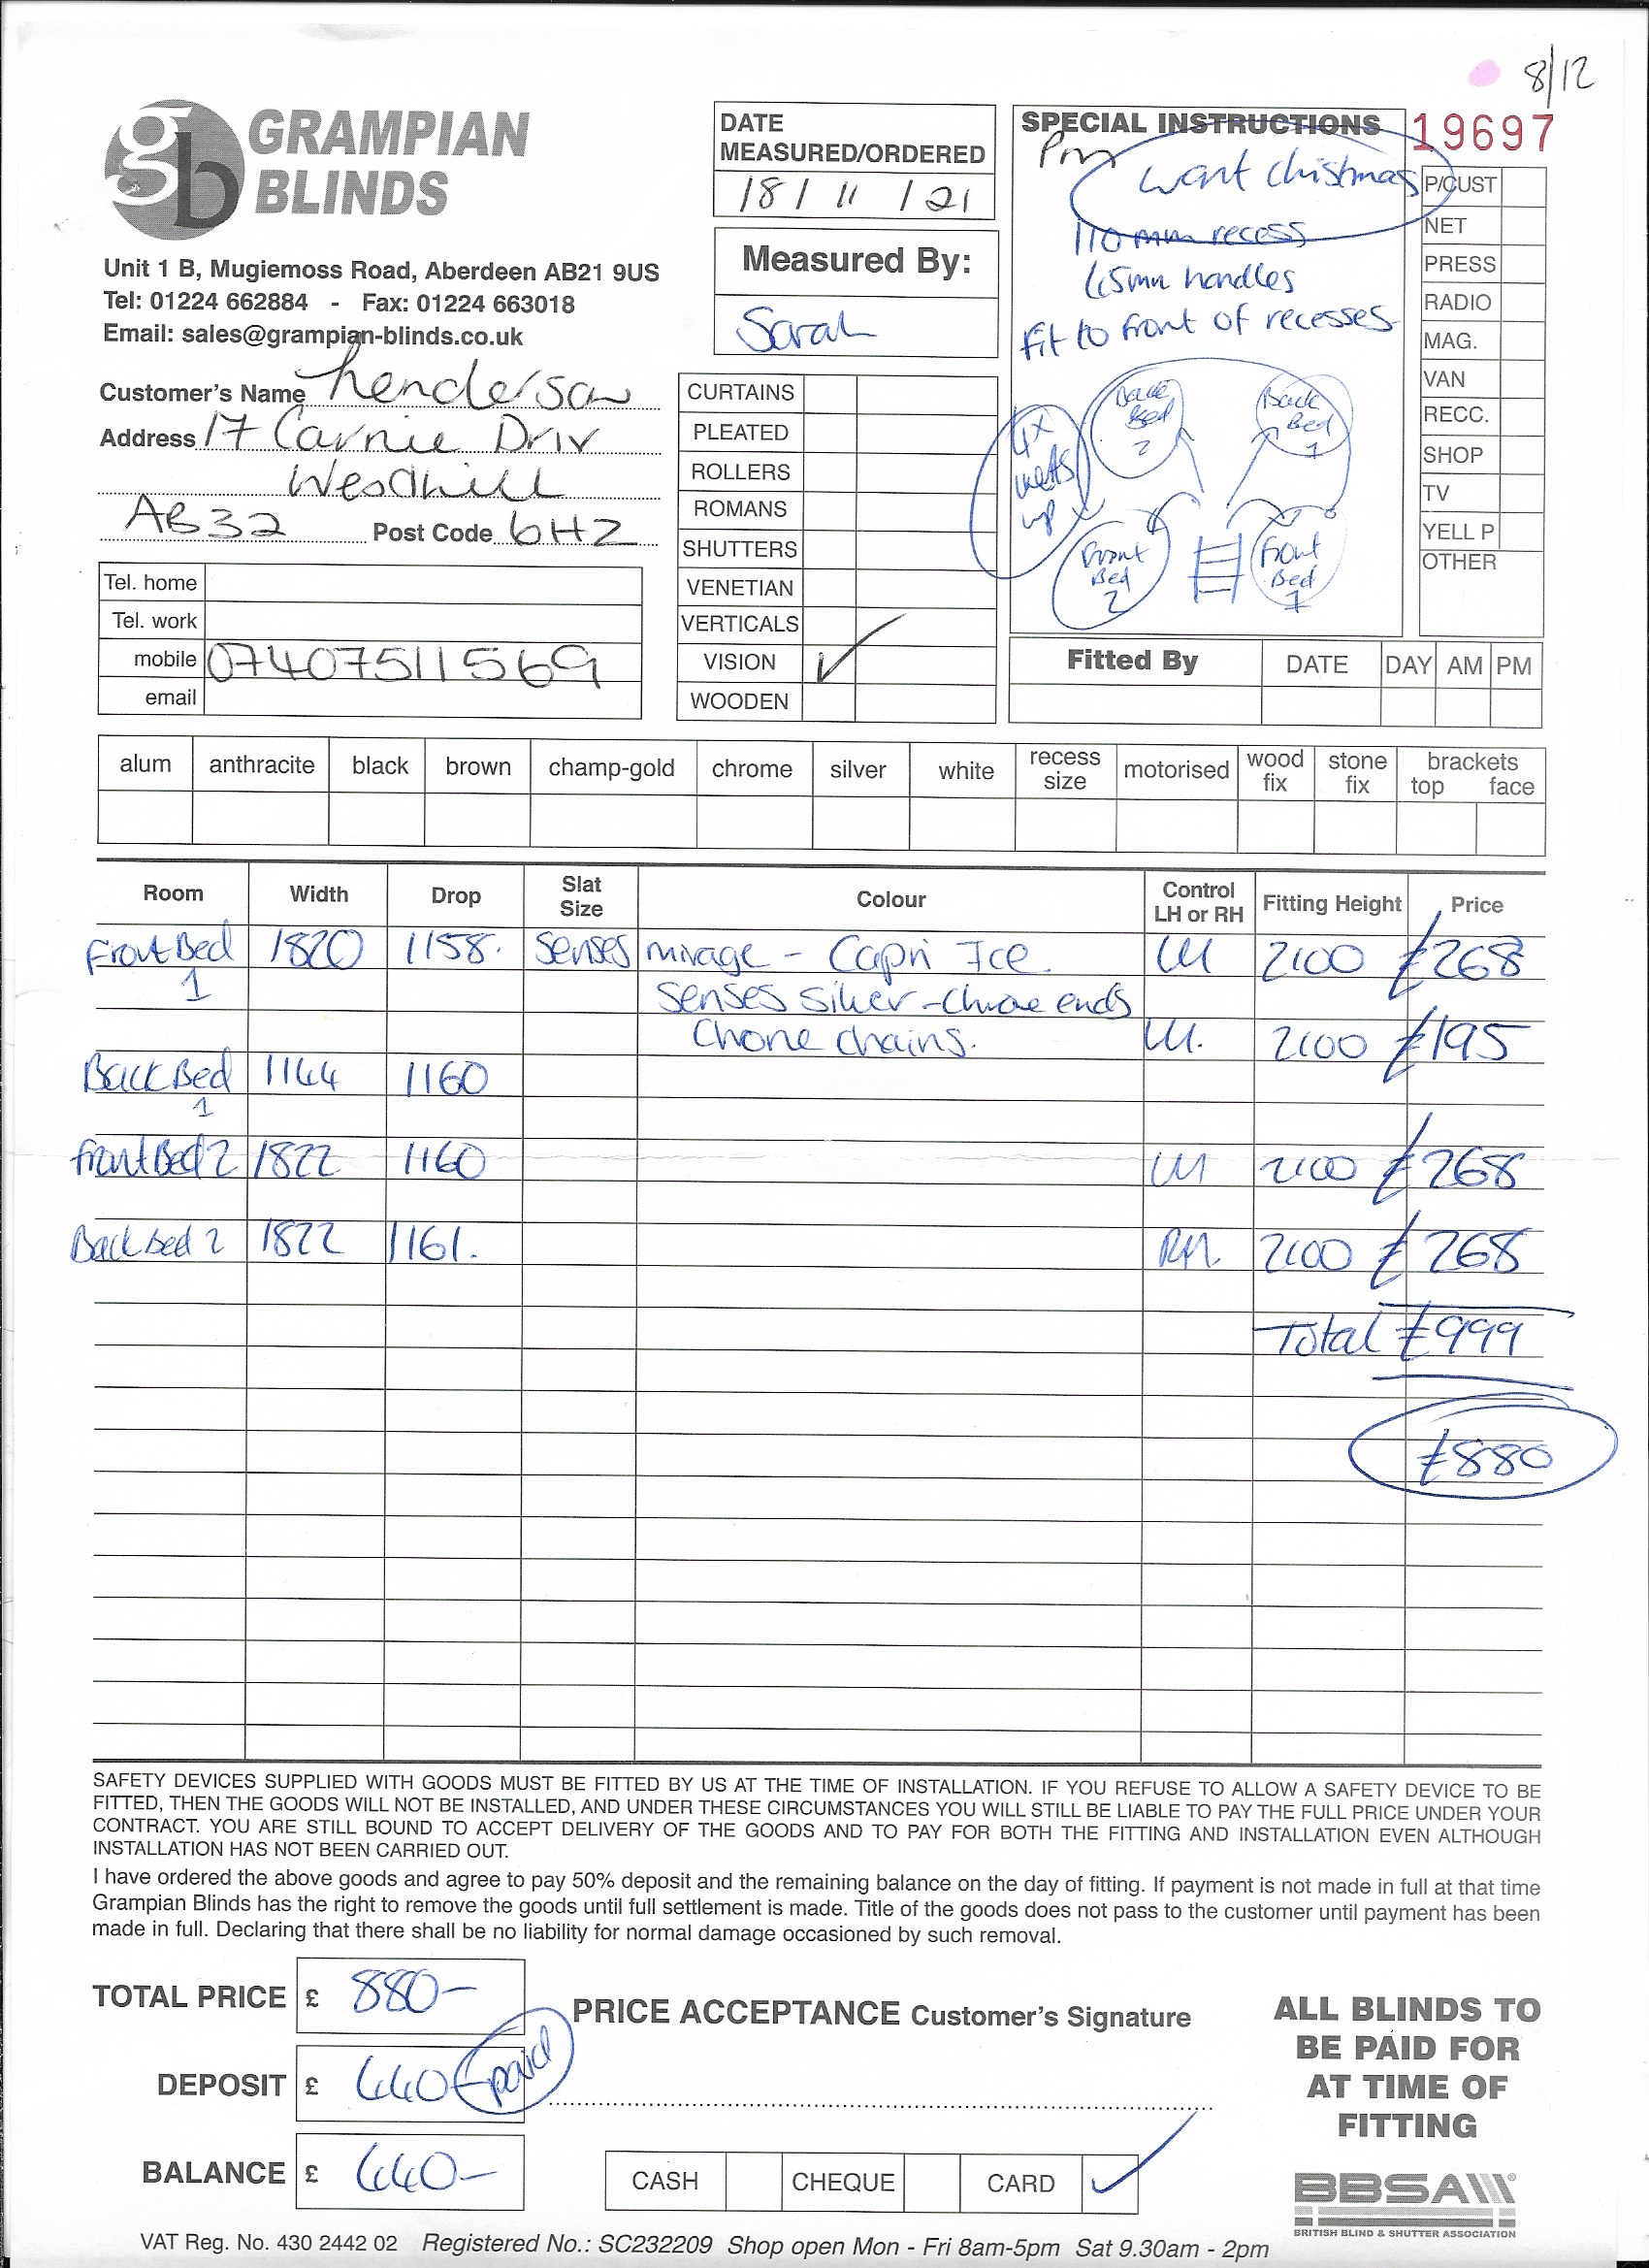 8/12
GRAMPIAN
BLINDS
Unit 1 B, Mugiemoss Road, Aberdeen AB21 9US
Tel: 01224 662884 - Fax: 01224 663018
Email: sales@grampian-blinds.co.uk
Customer's Name Henderson
Address 17 Carnie Driv
Westhill
AB32 Post Code 6HZ
Tel. home
Tel. work
mobile 07407511569
email
DATE
MEASURED/ORDERED
18/11/21
Measured By:
Sarah
CURTAINS
PLEATED
ROLLERS
ROMANS
SHUTTERS
VENETIAN
VERTICALS
VISION ✓
WOODEN
SPECIAL INSTRUCTIONS
Pm
want christmas
110mm recess
45mm handles
Fit to front of recesses
Back Bed 2
Back Bed 1
4x
up
Front Bed 2
Front Bed 1
19697
P/CUST
NET
PRESS
RADIO
MAG.
VAN
RECC.
SHOP
TV
YELL P
OTHER
Fitted By DATE DAY AM PM
alum anthracite black brown champ-gold chrome silver white recess size motorised wood fix stone fix brackets top face
Room Width Drop Slat Size Colour Control LH or RH Fitting Height Price
Front Bed 1 1820 1158. Senses mirage - Capri Ice LH 2100 £268
Senses Silver - Chrome ends
Chrone chains. LH. 2100 £195
Back Bed 1 1144 1160
Front Bed 2 1822 1160 LH 2100 £268
Back Bed 2 1822 1161. RH. 2100 £268
Total £999
£880
SAFETY DEVICES SUPPLIED WITH GOODS MUST BE FITTED BY US AT THE TIME OF INSTALLATION. IF YOU REFUSE TO ALLOW A SAFETY DEVICE TO BE
FITTED, THEN THE GOODS WILL NOT BE INSTALLED, AND UNDER THESE CIRCUMSTANCES YOU WILL STILL BE LIABLE TO PAY THE FULL PRICE UNDER YOUR
CONTRACT. YOU ARE STILL BOUND TO ACCEPT DELIVERY OF THE GOODS AND TO PAY FOR BOTH THE FITTING AND INSTALLATION EVEN ALTHOUGH
INSTALLATION HAS NOT BEEN CARRIED OUT.
I have ordered the above goods and agree to pay 50% deposit and the remaining balance on the day of fitting. If payment is not made in full at that time
Grampian Blinds has the right to remove the goods until full settlement is made. Title of the goods does not pass to the customer until payment has been
made in full. Declaring that there shall be no liability for normal damage occasioned by such removal.
TOTAL PRICE £ 880-
DEPOSIT £ 440- paid
BALANCE £ 440-
PRICE ACCEPTANCE Customer's Signature
CASH CHEQUE CARD ✓
ALL BLINDS TO
BE PAID FOR
AT TIME OF
FITTING
BBSA
BRITISH BLIND & SHUTTER ASSOCIATION
VAT Reg. No. 430 2442 02 Registered No.: SC232209 Shop open Mon - Fri 8am-5pm Sat 9.30am - 2pm